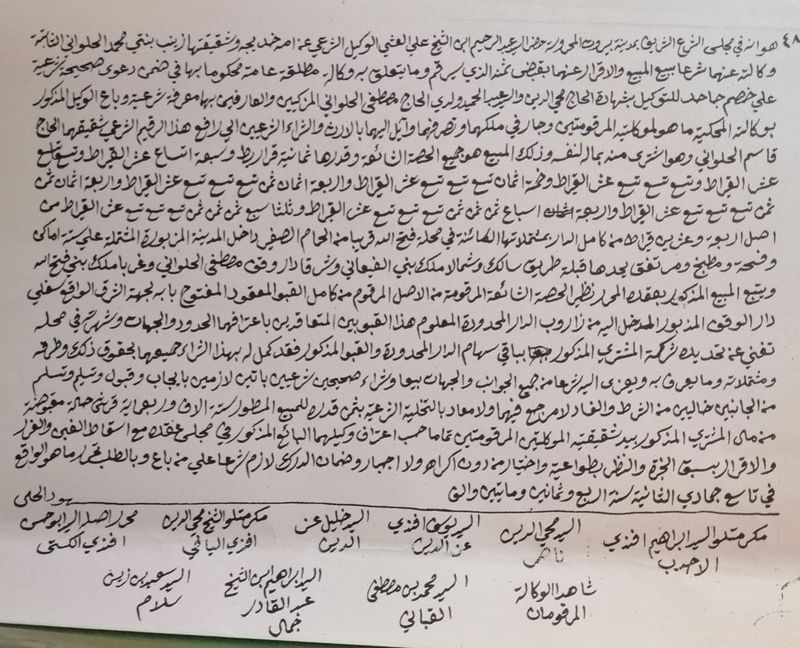 ٤٨ هو انه في مجلس الشرع الشريف بمدينة بيروت المحروسة حضر السيد عبد الرحيم ابن الشيخ علي الفتي الوكيل الشرعي عن امه خديجه وشقيقتها زينب بنتي محمد الحلواني الثابتة
وكالته عنهما شرعا ببيع المبيع والاقرار عنهما بقبض ثمنه الذي سيرقم وما يتعلق به وكالة مطلقة عامة محكوما بها في ضمن دعوى صحيحة شرعية
على خصم جاحد للتوكيل بشهادة الحاج محي الدين والسيد عبد الحميد ولدي الحاج مصطفى الحلواني المزكيين والعارفين بها معرفة شرعية وباع الوكيل المذكور
بوكالته المحكية ما هو لموكلتيه المرقومتين وجار في ملكهما وتصرفهما وآيل اليهما بالارث والشراء الشرعيين الى رافع هذا الرقيم الشرعي شقيقهما الحاج
قاسم الحلواني وهو اشترى منه بماله لنفسه وذلك المبيع هو جميع الحصة الشائعة وقدرها ثمانية قراريط وسبعة اتساع عشر القيراط وتسع تسع
عشر القيراط وتسع تسع تسع عشر القيراط وخمسة اثمان تسع تسع تسع عشر القيراط واربعة اثمان ثمن تسع تسع تسع عشر القيراط واربعة اثمان ثمن
ثمن تسع تسع تسع عشر القيراط واربعة اسباع ثمن ثمن ثمن تسع تسع تسع عشر القيراط وثلثا سبع ثمن ثمن ثمن تسع تسع تسع عشر القيراط من
اصل اربعة وعشرين قيراط من كامل الدار بمشتملاتها الكائنة في محلة فتح الله قربيا من الحمام الصغير داخل المدينة المزبورة المشتملة على ستة اماكن
وفسحة ومطبخ ومرتفق يحدها قبلة طريق سالك وشمالا ملك بني القبعاني وشرقا دار وقف مصطفى الحلواني وغربا ملك بني فتح الله
ويتبع المبيع المذكور بعقده المحرر نظير الحصة الشائعة المرقومة من الاصل المرقوم من كامل القبو المعقود المفتوح بابه لجهة الشرق الواقع سفلي
دار الوقف المذبور المدخل اليه من زاروب الدار المحدودة المعلوم هذا القبو بين المتعاقدين باعترافهما الحدود والجهات وشهرته في محله
تغني عن تحديده شركة المشتري المذكور بباقي سهام الدار المحدودة والقبو المذكور فقد كمل له بهذا الشراء جميعهما بحقوق ذلك وطرقه
ومشتملاته وما يعرف به ويعزى اليه شرعا من جميع الجوانب والجهات بيعا وشراء صحيحين شرعيين باتين لازمين بايجاب وقبول وتسليم وتسلم
من الجانبين خاليين من الشرط والفساد لا مرجع فيهما ولا معاد بالتخلية الشرعية بثمن قدره للمبيع المسطور ستة الاف واربعماية قرش حالة مقبوضة
من مال المشتري المذكور بيد شقيقتيه الموكلتين المرقومتين تماما حسب اعتراف وكيلهما البائع المذكور في مجلس عقده مع اسقاط الغبن والغرر
والاقرار بسبق الخبرة والنظر بطواعية واختيار من دون اكراه ولا اجبار وضمان الدرك لازم شرعا على من باع وبالطلب تحرر ما هو الواقع
في تاسع جمادي الثانية سنة اربع وثمانين ومايتين والف
شهود الحال
مكرمتلو السيد ابراهيم افندي الاحدب
السيد محي الدين
السيد يوسف افندي عز الدين
السيد خليل عز الدين
مكرمتلو الشيخ محي الدين افندي اليافي
محرر اصله السيد ابو حسن افندي الكستي
شاهدا الوكالة المرقومان
السيد محمد بن مصطفى القباني
السيد ابراهيم ابن الشيخ عبد القادر جمال
السيد سعيد بن زين سلام